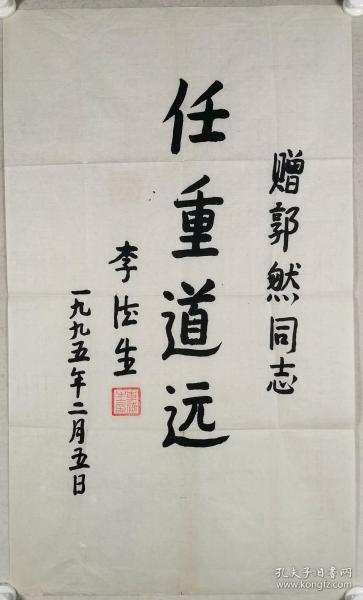 赠郭然同志
任重道远
李德生
一九九五年二月五日
孔夫子旧书网
www.kongfz.com